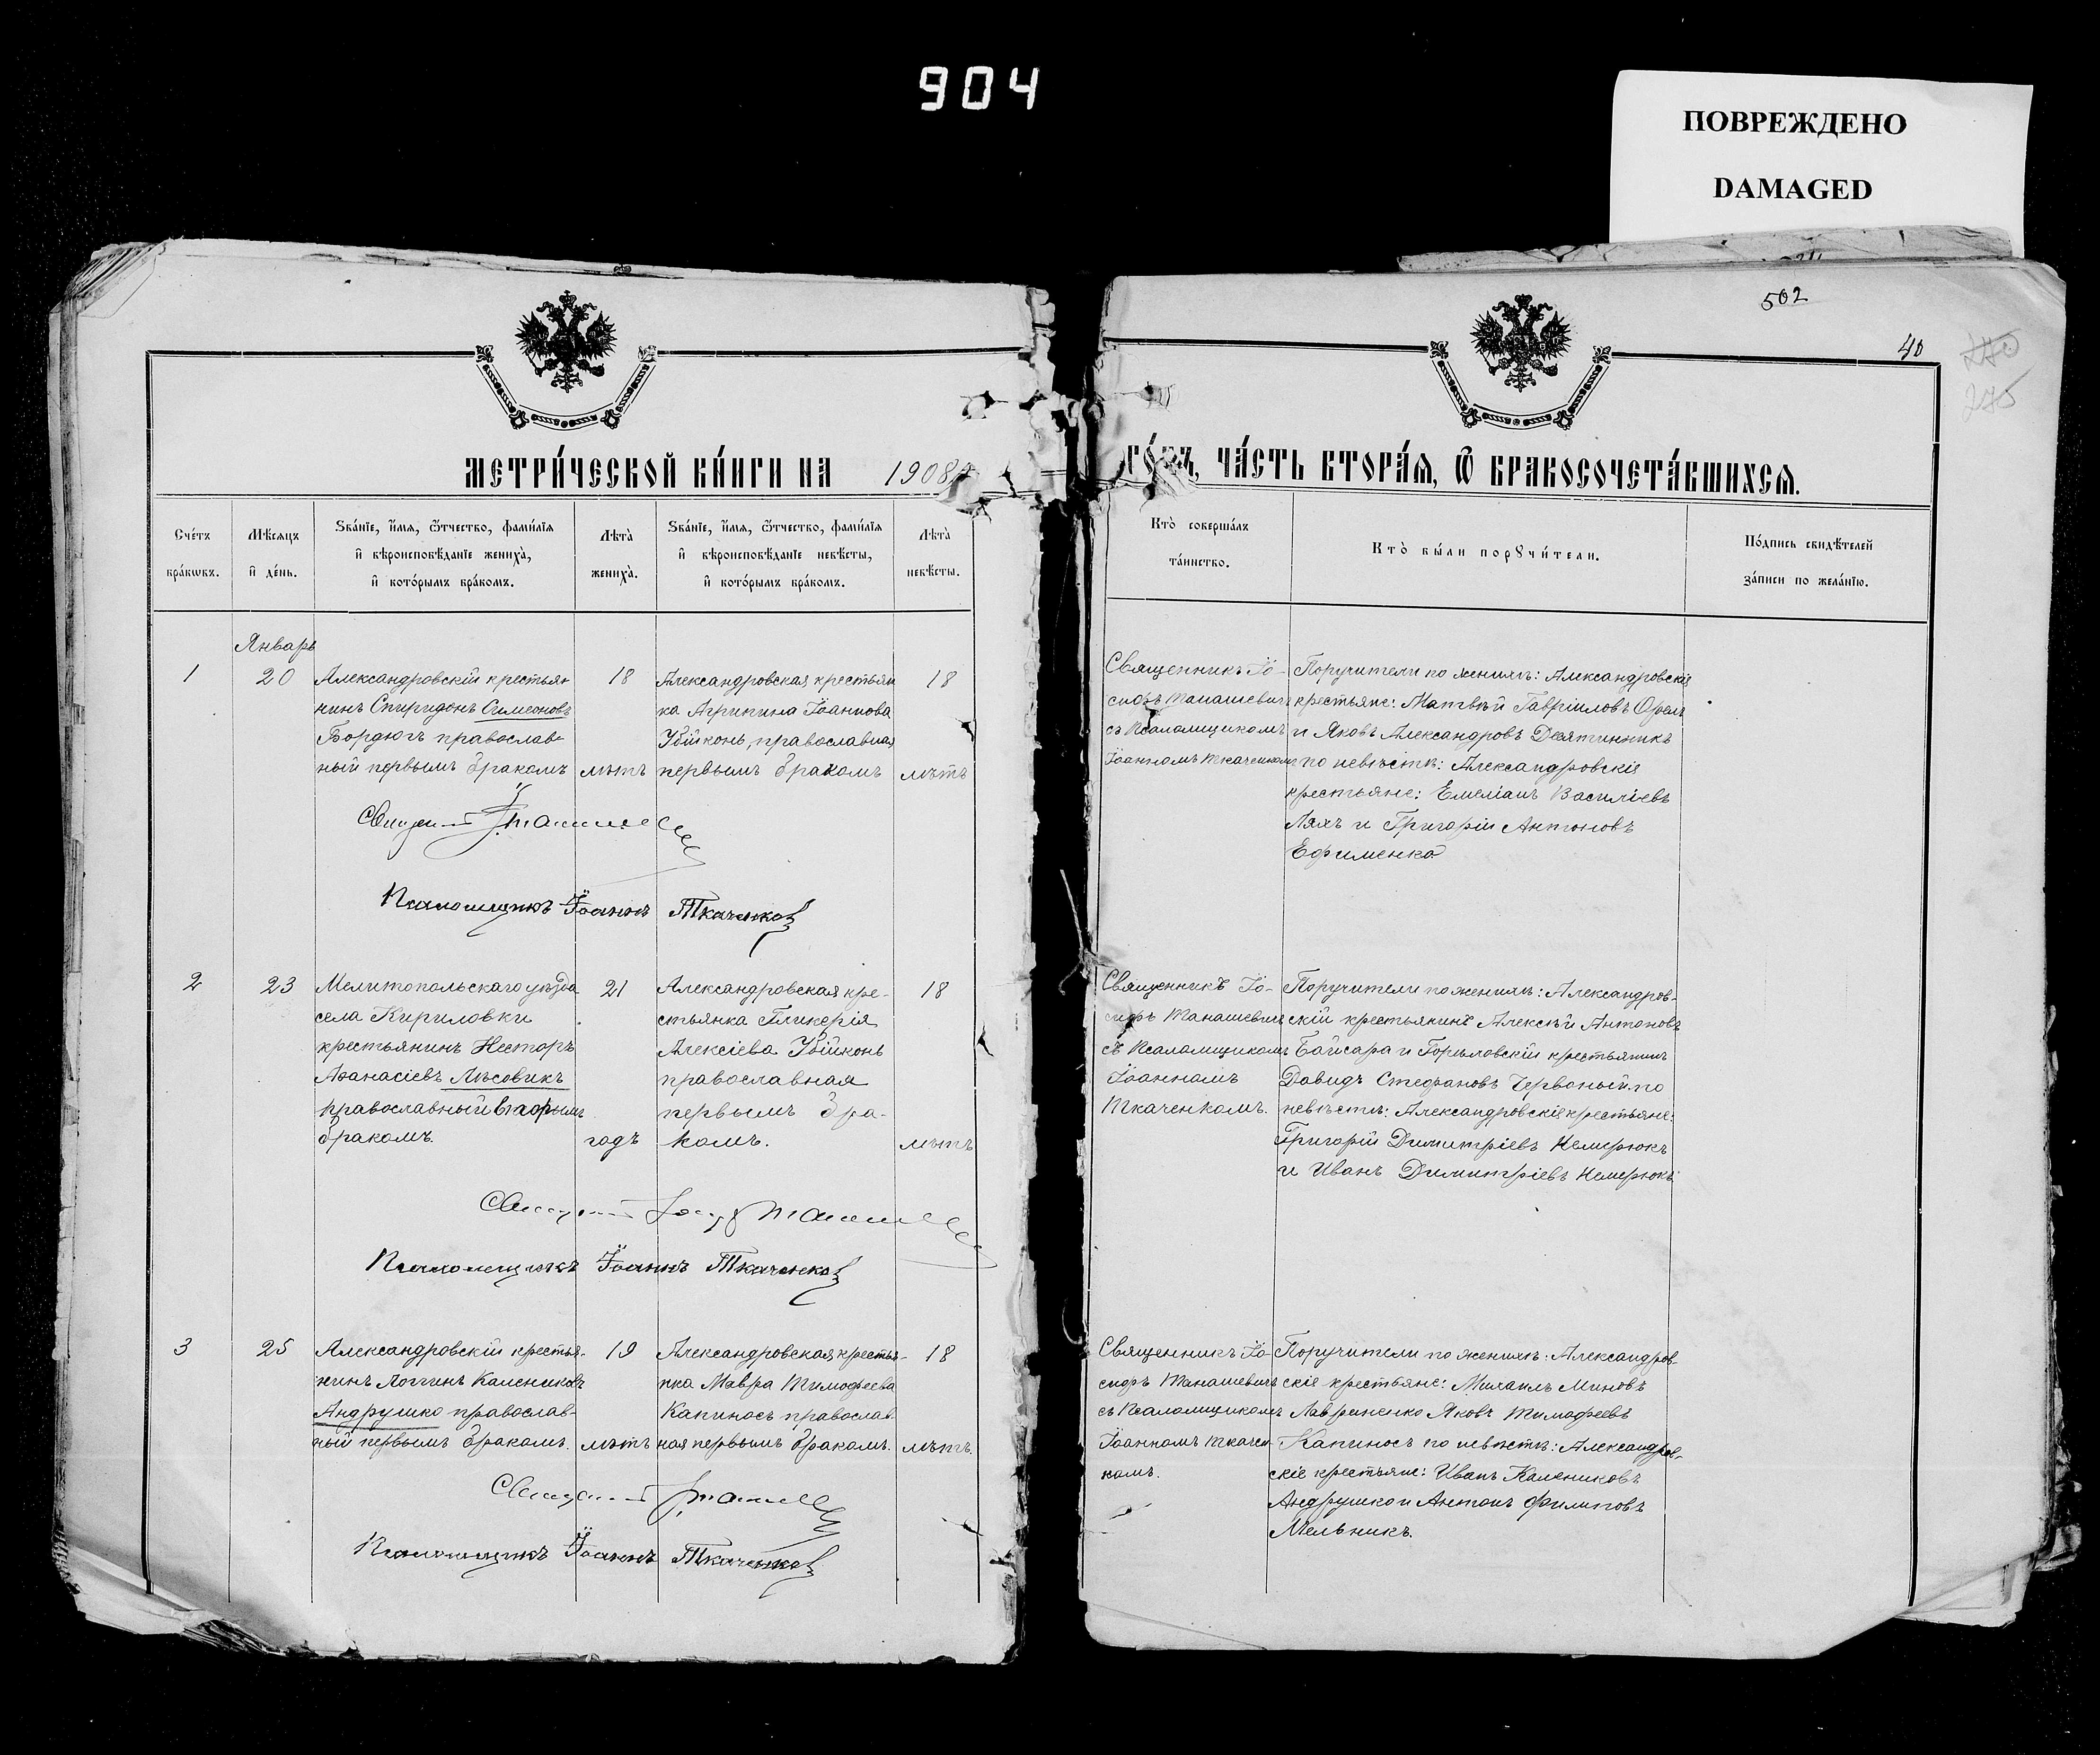 904
ПОВРЕЖДЕНО
DAMAGED
502
40
МЕТРИ́ЧЕСКОЙ КНИ́ГИ НА 1908
ГО́ДЪ, ЧА́СТЬ ВТОРА́Я, Ѿ БРАКОСОЧЕТА́ВШИХСЯ.
Сче́тъ бра́кѡвъ.
Мѣ́сяцъ и҆ де́нь.
Ѕва́нїе, и҆́мя, ѻ҆́тчество, фами́лїя
и҆ вѣроисповѣ́данїе жениха̀,
и҆ кото́рымъ бра́комъ.
Лѣ́та̀ жениха̀.
Ѕва́нїе, и҆́мя, ѻ҆́тчество, фами́лїя
и҆ вѣроисповѣ́данїе невѣ́сты,
и҆ кото́рымъ бра́комъ.
Лѣ́та̀ невѣ́сты.
Кто̀ соверша́лъ та́инство.
Кто̀ бы́ли порꙋчи́тели.
По́дпись свидѣ́телей
за́писи по жела́нїю.
Январь
1
20
Александровскій крестья-
нинъ Спиридонъ Симеоновъ
Бордюгъ православ-
ный первымъ бракомъ
18
лѣтъ
Александровская крестьян
ка Агрипина Іоаннова
Убійконь, православная
первымъ бракомъ
18
лѣтъ
Священникъ Іо-
сифъ Танашевичъ
съ Псаломщикомъ
Іоанномъ Ткаченкомъ
Поручители по женихѣ: Александровскіе
крестьяне: Матвѣй Гавріиловъ Орелъ
и Яковъ Александровъ Десятинникъ
по невѣстѣ: Александровскіе
крестьяне: Емеліанъ Василіевъ
Ляхъ и Григорій Антоновъ
Ефименко
Псаломщикъ Іоаннъ Ткаченко
2
23
Мелитопольскаго уѣзда
села Кириловки
крестьянинъ Несторъ
Аѳанасіевъ Лѣсовикъ
православный вторымъ
бракомъ.
21
годъ
Александровская кре-
стьянка Гликерія
Алексіева Убійконь
православная
первымъ бра-
комъ.
18
лѣтъ
Священникъ Іо-
сифъ Танашевичъ
съ Псаломщикомъ
Іоанномъ
Ткаченкомъ.
Поручители по женихѣ: Александров-
скій крестьянинъ Алексѣй Антоновъ
Байсара и Горѣловскій крестьянинъ
Давидъ Стефановъ Червоный. по
невѣстѣ: Александровскіе крестьяне:
Григорій Димитріевъ Кемерюкъ
и Иванъ Димитріевъ Кемерюкъ
Псаломщикъ Іоаннъ Ткаченко
3
25
Александровскій крестья-
нинъ Логгинъ Калениковъ
Андрушко православ-
ный первымъ бракомъ.
19
лѣтъ
Александровская крестья-
нка Мавра Тимофеева
Капиносъ православ-
ная первымъ бракомъ.
18
лѣтъ.
Священникъ Іо-
сифъ Танашевичъ
съ Псаломщикомъ
Іоанномъ Ткачен-
комъ.
Поручители по женихѣ: Александров-
скіе крестьяне: Михаилъ Миновъ
Лавриненко Яковъ Тимофеевъ
Капиносъ по невѣстѣ: Александров-
скіе крестьяне: Иванъ Калениковъ
Андрушко и Антонъ Филиповъ
Мельникъ.
Псаломщикъ Іоаннъ Ткаченко